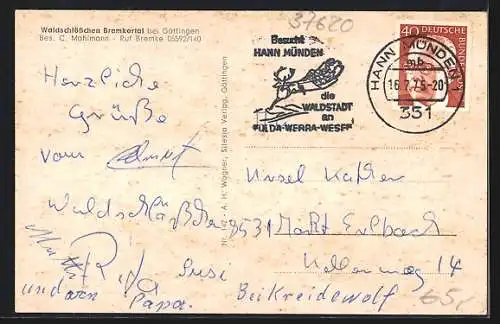 Waldschlößchen Bremkertal bei Göttingen
Bes. C. Mahlmann - Ruf Bremke 05592/140
37620
Besucht
HANN MÜNDEN
die
WALDSTADT
an
FULDA-WERRA-WESER
HANN MÜNDEN
16.7.75-20
351
40
DEUTSCHE BUNDES
Herzliche
Grüße
vom
Waldschlößchen
Susi
und vom Papa.
A. H. Wagner, Silesia Verlag, Göttingen
Ursel
8531 Markt Erlbach
14
65,-